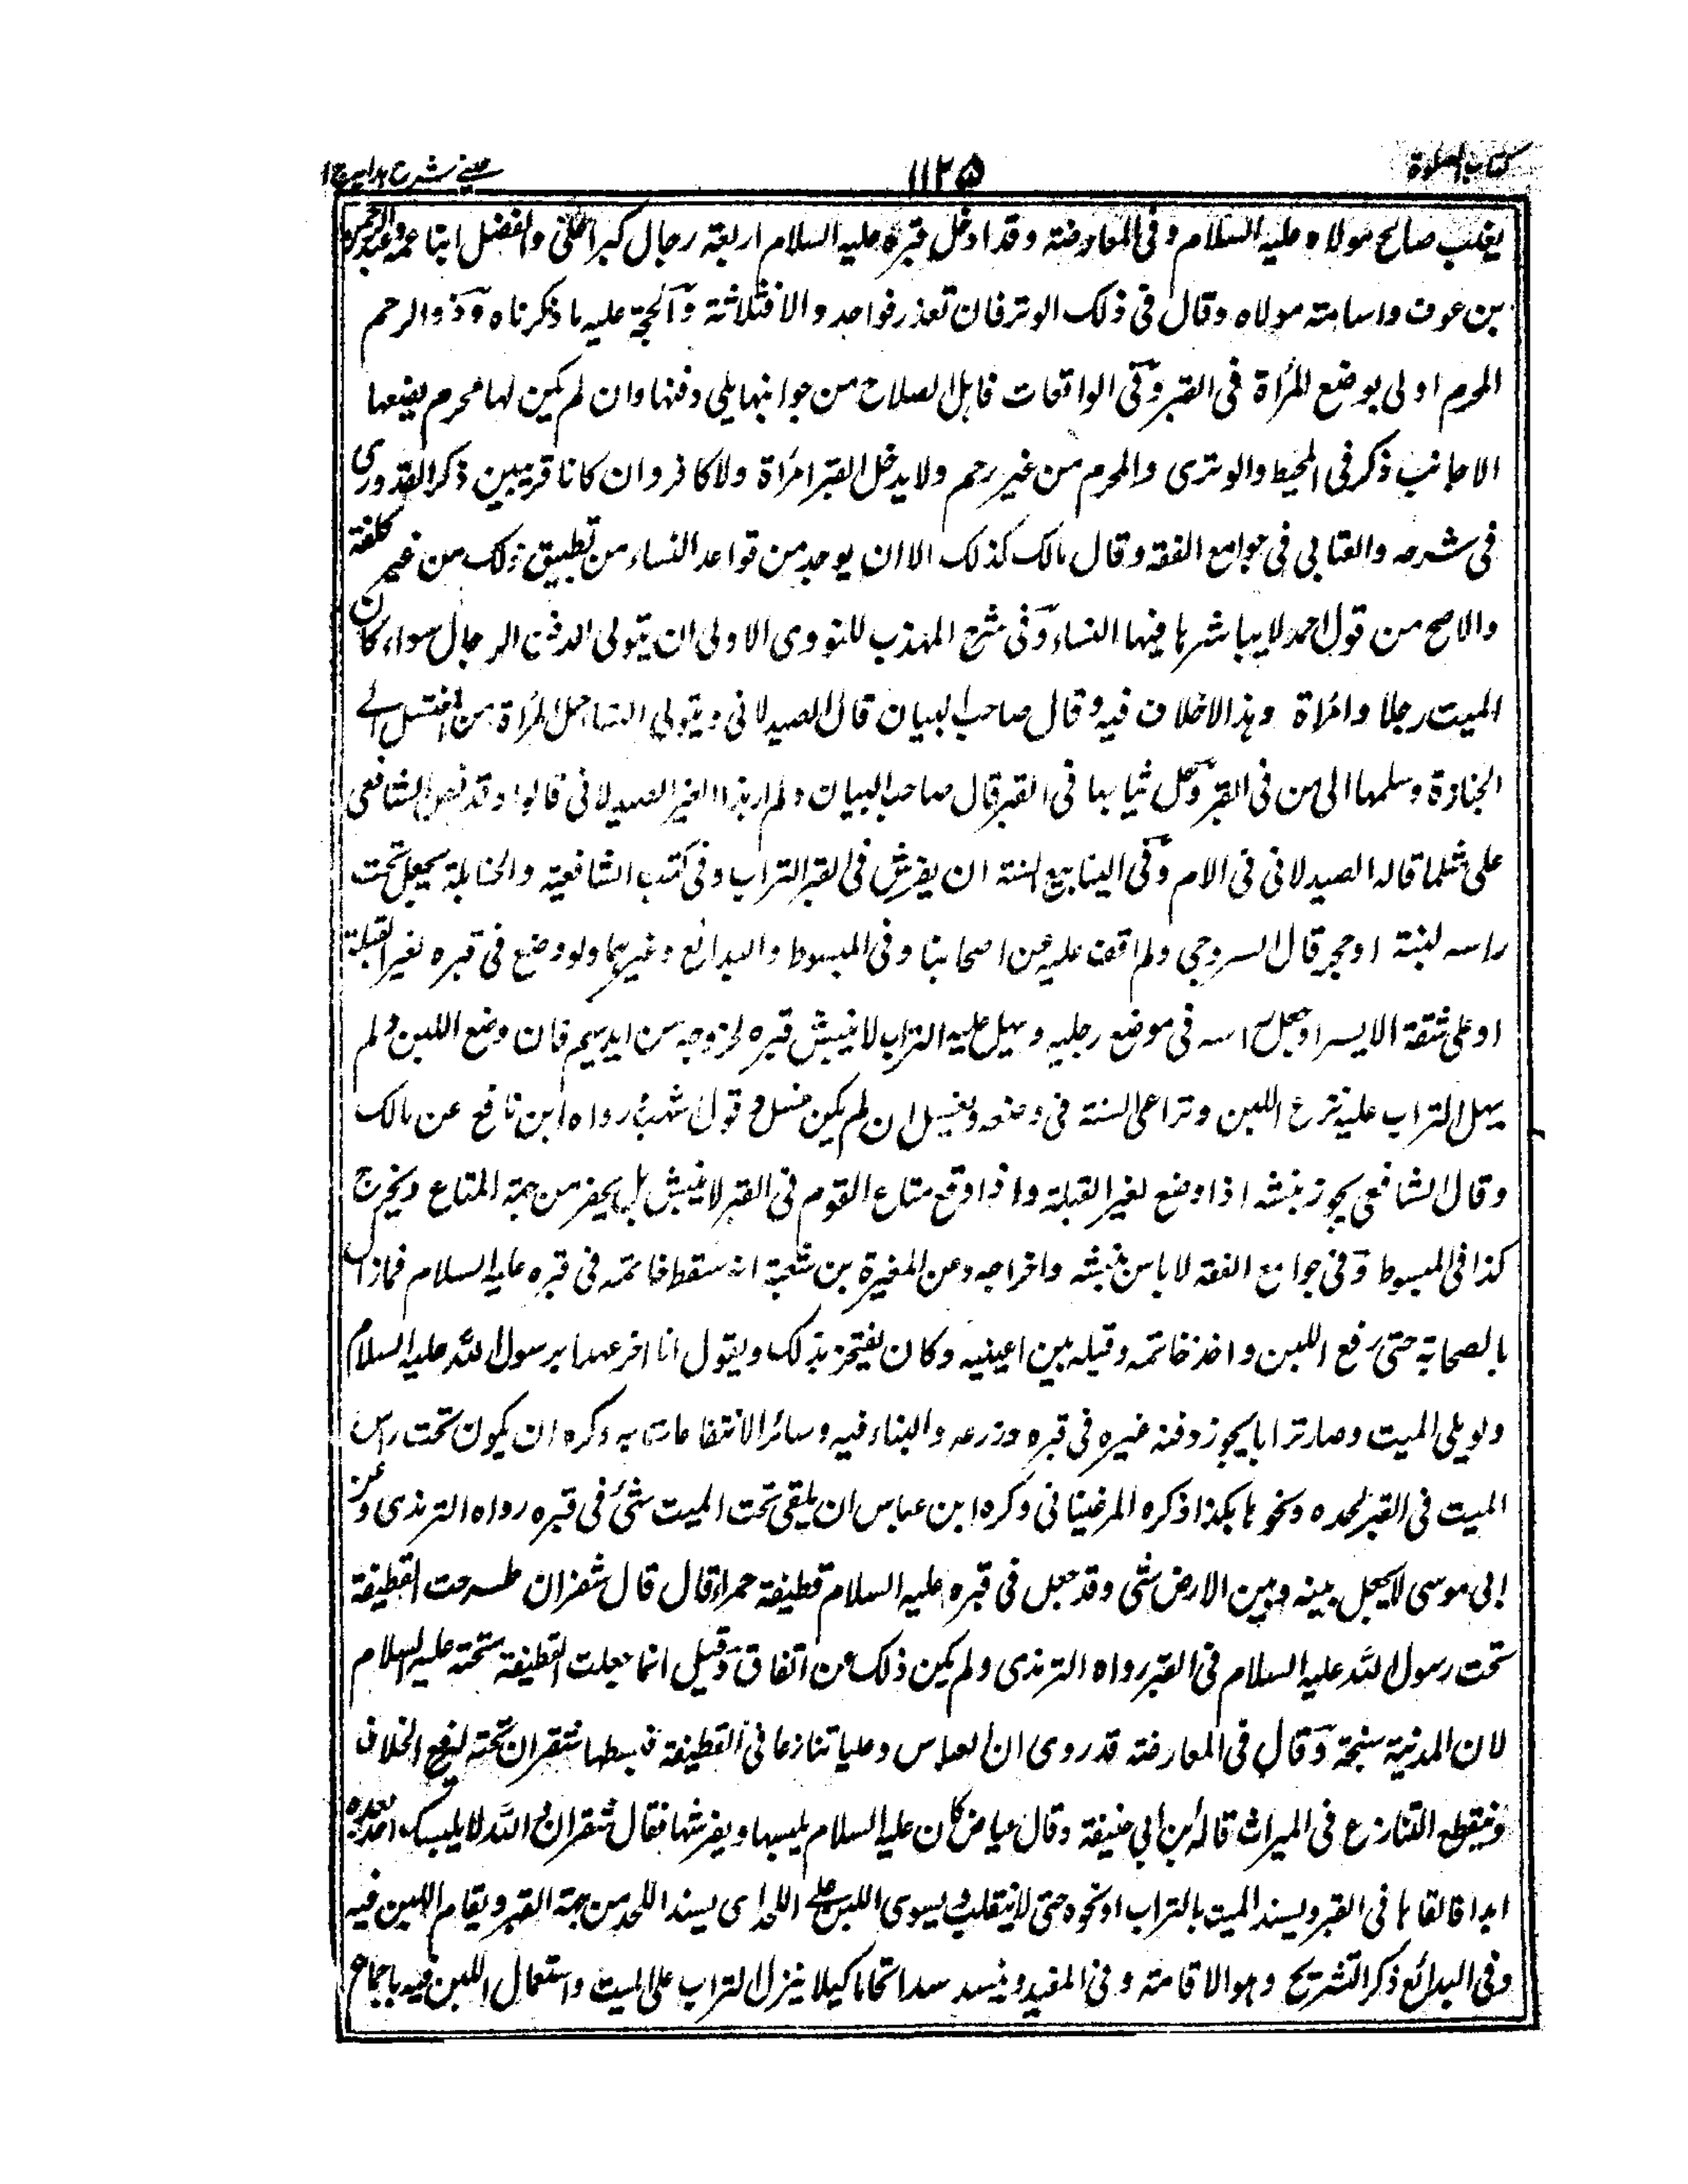 كتاب الصلوة
١١٢٥
عيني شرح هدايه ج١
يغلب صالح مولاه عليه السلام وفي المعارضة وقد ادخل قبره عليه السلام اربعة رجال كبرا على والفضل ابنا عمه وعبد الرحمن
بن عوف واسامة مولاه وقال في ذلك الوتر فان تعذر فواحد والا فثلاثة والحجة عليه ما ذكرناه وذو الرحم
المحرم اولى بوضع المرأة في القبر وفي الواقعات فاهل الصلاح من جوانبها يلي دفنها وان لم يكن لها محرم يضعها
الاجانب ذكر في المحيط والوترى والمحرم من غير رحم ولا يدخل القبر امرأة ولا كافر وان كانا قريبين ذكر القدورى
في شرحه والعتابي في جوامع الفقه وقال مالك كذلك الا ان يوجد من قواعد النساء من تطبيق ذلك من غير كلفة
والاصح من قول احمد لا يباشرها فيها النساء وفي شرح المهذب للنووى الاولى ان يتولى الدفن الرجال سواء كان
الميت رجلا وامرأة وهذا لاخلاف فيه وقال صاحب البيان قال الصيدلانى ويتولى النسا حمل المرأة من المغتسل الى
الجنازة وسلمها الى من في القبر وحل ثيابها في القبر قال صاحب البيان ولم ار هذا لغير الصيدلانى قالوا وقد نص الشافعى
على مثل ما قاله الصيدلانى في الام وفي الينابيع السنة ان يفرش في القبر التراب وفي كتب الشافعية والحنابلة يجعل تحت
راسه لبنة او حجر قال السروجى ولم اقف عليه عن اصحابنا وفي المبسوط والبدائع وغيرهما ولو وضع في قبره لغير القبلة
او على شقة الايسر او جعل راسه في موضع رجليه وهيل عليه التراب لا ينبش قبره لخروجه من ايديهم فان وضع اللبن ولم
يهل التراب عليه نزع اللبن وتراعى السنة في وضعه ويغسل ان لم يكن غسل وقول اشهب رواه ابن نافع عن مالك
وقال الشافعى يجوز نبشه اذا وضع لغير القبلة واذا وقع متاع القوم في القبر لا ينبش بل يحفر من جهة المتاع ويخرج
كذا في المبسوط وفي جوامع الفقه لا باس بنبشه واخراجه وعن المغيرة بن شعبة انه سقط خاتمه في قبره عليه السلام فما زال
بالصحابة حتى رفع اللبن واخذ خاتمه وقبله بين اعينيه وكان يفتخر بذلك ويقول انا اخر عهدا برسول الله عليه السلام
ولو بلى الميت وصار ترابا يجوز دفن غيره في قبره وزرعه والبناء فيه وسائر الانتفاعات به وكره ان يكون تحت راس
الميت في القبر مخده ونحوها هكذا ذكره المرغينانى وكره ابن عباس ان يلقى تحت الميت شئ في قبره رواه الترمذى وعن
ابى موسى لا يجعل بينه وبين الارض شئ وقد جعل في قبره عليه السلام قطيفة حمراء قال قال شقران طرحت القطيفة
تحت رسول الله عليه السلام في القبر رواه الترمذى ولم يكن ذلك عن اتفاق وقيل انما جعلت القطيفة تحته عليه السلام
لان المدينة سبخة وقال في المعارضة قد روى ان العباس وعليا تنازعا في القطيفة فبسطها شقران تحته ليرفع الخلاف
وينقطع التنازع في الميراث قاله ابن ابي خيفة وقال عياض كان عليه السلام يلبسها ويفرشها فقال شقران والله لا يلبسك احد بعده
ابدا فالقاها في القبر ويسند الميت بالتراب او نحوه حتى لا ينقلب ويسوى اللبن على اللحد اى يسند اللحد من جهة القبر ويقام اللبن فيه
وفي البدائع ذكر التشريح وهو الاقامة وفي المفيد ويسد سدا تحاما كيلا ينزل التراب على الميت واستعمال اللبن فيه باجماع